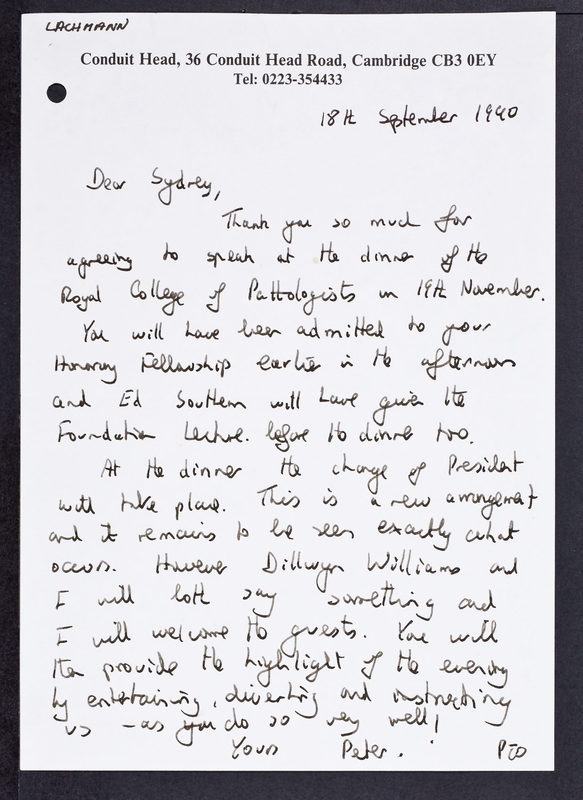 LACHMANN
Conduit Head, 36 Conduit Head Road, Cambridge CB3 0EY
Tel: 0223-354433
18th September 1990
Dear Sydney,
Thank you so much for
agreeing to speak at the dinner of the
Royal College of Pathologists on 19th November.
You will have been admitted to your
Honorary Fellowship earlier in the afternoon
and Ed Southern will have given the
Foundation Lecture before the dinner too.
At the dinner the change of President
will take place. This is a new arrangement
and it remains to be seen exactly what
occurs. However Dillwyn Williams and
I will both say something and
I will welcome the guests. You will
then provide the highlight of the evening
by entertaining, diverting and instructing
us - as you do so very well!
Yours Peter. PTO